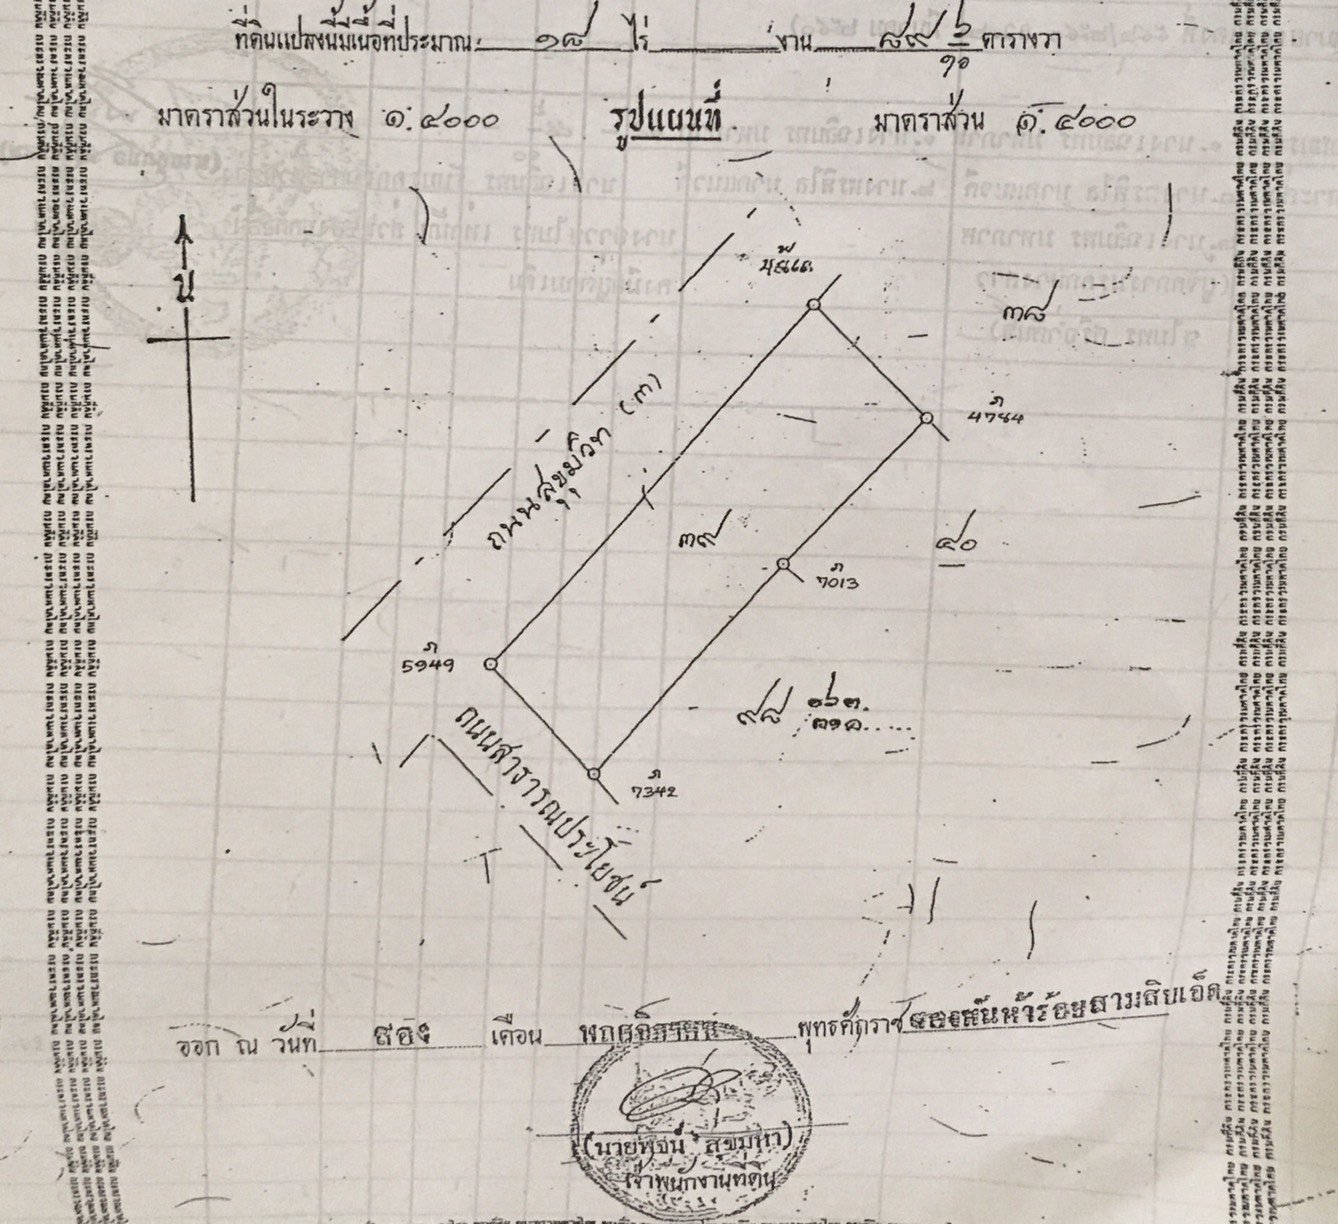 ที่ดินแปลงนี้มีเนื้อที่ประมาณ ๑๘ ไร่ งาน ๘๙ ๖/๑๐ ตารางวา
มาตราส่วนในระวาง ๑:๔๐๐๐ รูปแผนที่ มาตราส่วน ๑:๔๐๐๐
น
๓๘
ก 4784
ถนนสุขุมวิท (๓)
๓๙
๔๐
ก 7013
ก 5949
๙๘
ก 7342
ถนนสาธารณประโยชน์
ออก ณ วันที่ สอง เดือน พฤศจิกายน พุทธศักราช สองพันห้าร้อยสามสิบเอ็ด
เจ้าพนักงานที่ดิน